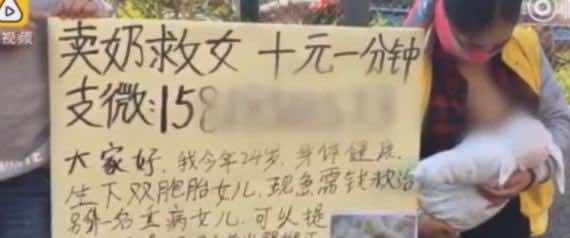 视频
卖奶救女 十元一分钟
支微:15
大家好,我今年24岁,身体健康,
生下双胞胎女儿,现急需钱救治
另外一名重病女儿,可以提